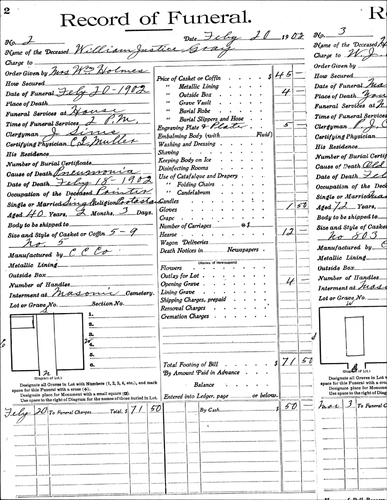 2
Record of Funeral.
No. 2 Date Feby 20 1902
Name of the Deceased William Justice Gray
Charge to
Order Given by Mrs Wm Holmes
How Secured
Date of Funeral Feby 20-1902
Place of Death
Funeral Services at House
Time of Funeral Services 2 P.M.
Clergyman J. Sims
Certifying Physician C. L. Muller
His Residence
Number of Burial Certificate
Cause of Death Pneumonia
Date of Death Feby 18-1902
Occupation of the Deceased Painter
Single or Married Single Religion
Aged 40 Years, 2 Months, 3 Days.
Body to be shipped to
Size and Style of Casket or Coffin 5-9
No. 5
Manufactured by C C Co
Metallic Lining
Outside Box
Number of Handles
Interment at Masonic Cemetery.
Lot or Grave No. Section No.
1.
2.
3.
4.
5.
6.
(Diagram of Lot.)
Designate all Graves in Lot with Numbers (1, 2, 3, 4, etc.), and mark
space for this Funeral with a cross (+).
Designate place for Monument with a small square (□).
Use space to the right of Diagram for the names of those buried in Lot.
Feby 20 To Funeral Charges Total, $ 71 50
Price of Casket or Coffin $ 45 -
" Metallic Lining
" Outside Box 4 -
" Grave Vault
" Burial Robe
" Burial Slippers and Hose
Engraving Plate & Plate 5
Embalming Body (with Fluid)
Washing and Dressing
Shaving
Keeping Body on Ice
Disinfecting Rooms
Use of Catafalque and Drapery
" Folding Chairs
" Candelabrum
Candles
Gloves 1 50
Crape
Number of Carriages @ $
Hearse 12 -
Wagon Deliveries
Death Notices in Newspapers
(Names of Newspapers)
Flowers
Outlay for Lot
Opening Grave 4 -
Lining Grave
Shipping Charges, prepaid
Removal Charges
Cremation Charges
Total Footing of Bill $ 71 50
By Amount Paid in Advance
Balance
Entered into Ledger, page or below.
By Cash $ 50 -
R
No. 3
Name of the Deceased
W. J.
Charge to
Order Given by
How Secured
Date of Funeral
Place of Death
Funeral Services at
Time of Funeral
Clergyman P. J. C
Certifying Physician
His Residence
Number of Burial
Cause of Death Old
Date of Death
Occupation of the
Single or Married
Aged 72 Years,
Body to be shipped
Size and Style of
No 803
Manufactured by
Metallic Lining
Outside Box
Number of Handles
Interment at
Lot or Grave No.
(Diagram of Lot.)
Designate all Graves in Lot
space for this Funeral with a
Designate place for Monument
Use space to the right of Diagram
Mar 3 To Funeral